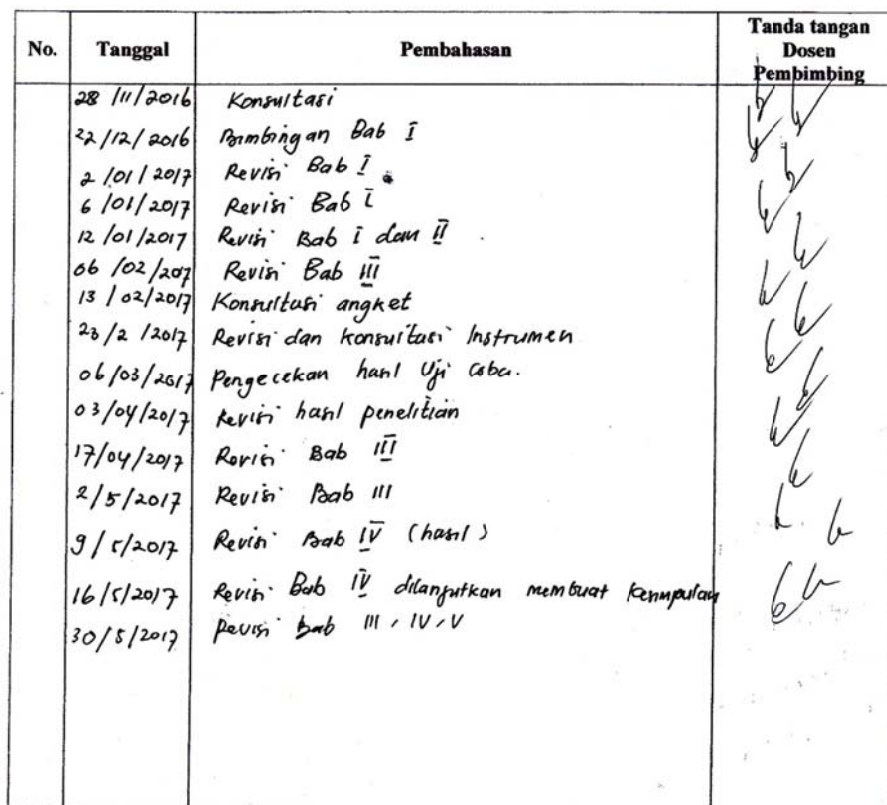 No. Tanggal Pembahasan Tanda tangan
Dosen
Pembimbing
28 /11/2016 Konsultasi
22/12/2016 Bimbingan Bab I
2 /01/2017 Revisi Bab I
6 /01/2017 Revisi Bab I
12 /01/2017 Revisi Bab I dan II
06 /02/2017 Revisi Bab III
13 / 02/2017 Konsultasi angket
23/2 /2017 Revisi dan konsultasi Instrumen
06/03/2017 Pengecekan hasil Uji Coba.
03/04/2017 Revisi hasil penelitian
17/04/2017 Revisi Bab III
2/5/2017 Revisi Bab III
9/5/2017 Revisi Bab IV (hasil)
16/5/2017 Revisi Bab IV dilanjutkan membuat kesimpulan
30/5/2017 Revisi bab III, IV, V